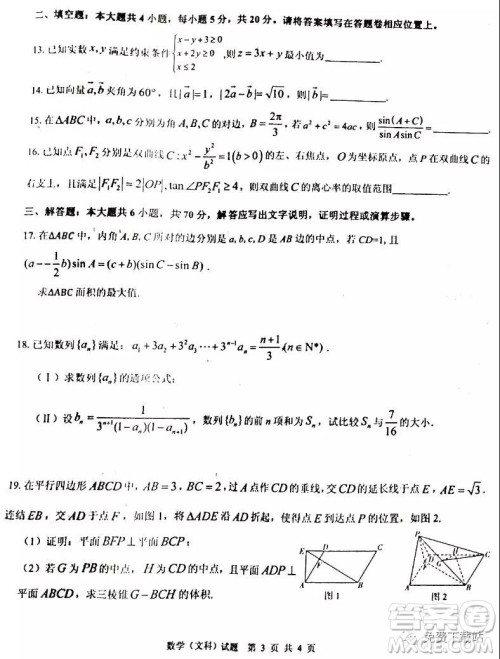 二、填空题：本大题共4小题，每小题5分，共20分。请将答案填写在答题卷相应位置上。
13. 已知实数x,y满足约束条件{x-y+3≥0, x+2y≥0, x≤2, 则z=3x+y最小值为
14. 已知向量a,b夹角为60°，且|a|=1, |2a-b|=√10, 则|b|=
15. 在ΔABC中，a,b,c分别为角A,B,C的对边，B=2π/3, 若a²+c²=4ac, 则sin(A+C)/sinAsinC=
16. 已知点F₁,F₂分别是双曲线C:x²-y²/b²=1(b>0)的左、右焦点，O为坐标原点，点P在双曲线C的
右支上，且满足|F₁F₂|=2|OP|, tan∠PF₂F₁≥4, 则双曲线C的离心率的取值范围
三、解答题：本大题共6小题，共70分，解答应写出文字说明，证明过程或演算步骤。
17. 在ΔABC中，内角A、B、C所对的边分别是a, b, c, D是AB的中点，若CD=1,且
(a--1/2b)sinA=(c+b)(sinC-sinB).
求ΔABC面积的最大值.
18. 已知数列{aₙ}满足：a₁+3a₂+3²a₃⋯+3ⁿ⁻¹aₙ=(n+1)/3,(n∈N*).
（Ⅰ）求数列{aₙ}的通项公式；
（II）设bₙ=1/(3ⁿ⁺¹(1-aₙ)(1-aₙ₊₁)), 数列{bₙ}的前n项和为Sₙ, 试比较Sₙ与7/16的大小.
19. 在平行四边形ABCD中，AB=3, BC=2, 过A点作CD的垂线，交CD的延长线于点E, AE=√3.
连结EB, 交AD于点F, 如图1, 将ΔADE沿AD折起，使得点E到达点P的位置，如图2.
（1）证明：平面BFP⊥平面BCP；
（2）若G为PB的中点，H为CD的中点，且平面ADP⊥
平面ABCD, 求三棱锥G-BCH的体积.
E D C
F
A B
图1
P
图2
数学（文科）试题 第3页 共4页
免费下载站